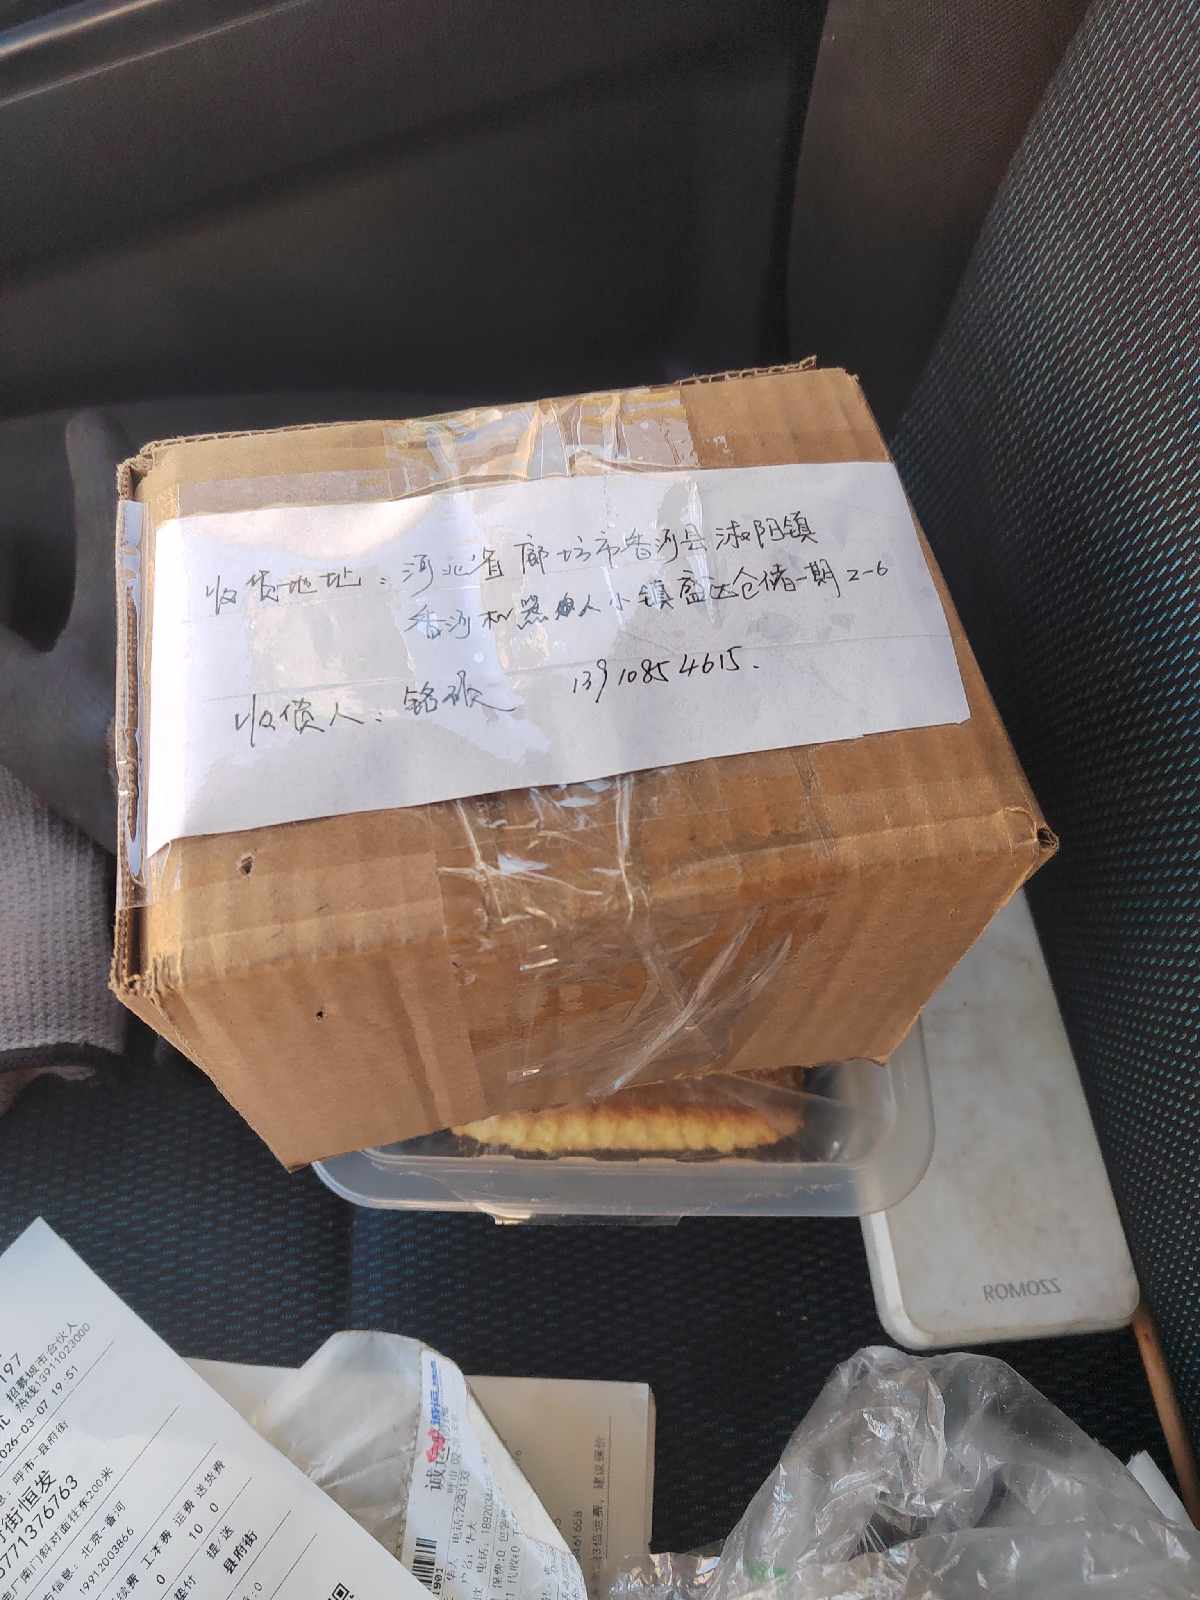 收货地址：河北省廊坊市香河县淑阳镇
香河机器人小镇盈达仓储一期2-6
收货人：铭硕 13910854615.
ROMOSS
197
招募城市合伙人
热线13911023000
026-03-07 19:51
呼市-县府街
街恒发
5771376763
电厂南门斜对面往东200米
北京-香河
19912003866
工本费 运费 送货费
0 10 0
垫付 提送
县府街
诚
电话:2293133
3倍运费，建议保价
461668